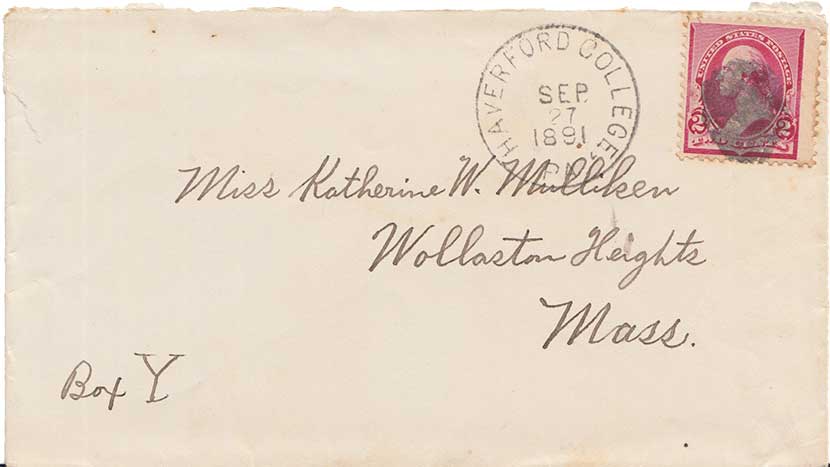 HAVERFORD COLLEGE
SEP
27
1891
PA.
UNITED STATES POSTAGE
2 2
TWO CENTS
Miss Katherine W. Mulliken
Wollaston Heights
Mass.
Box Y